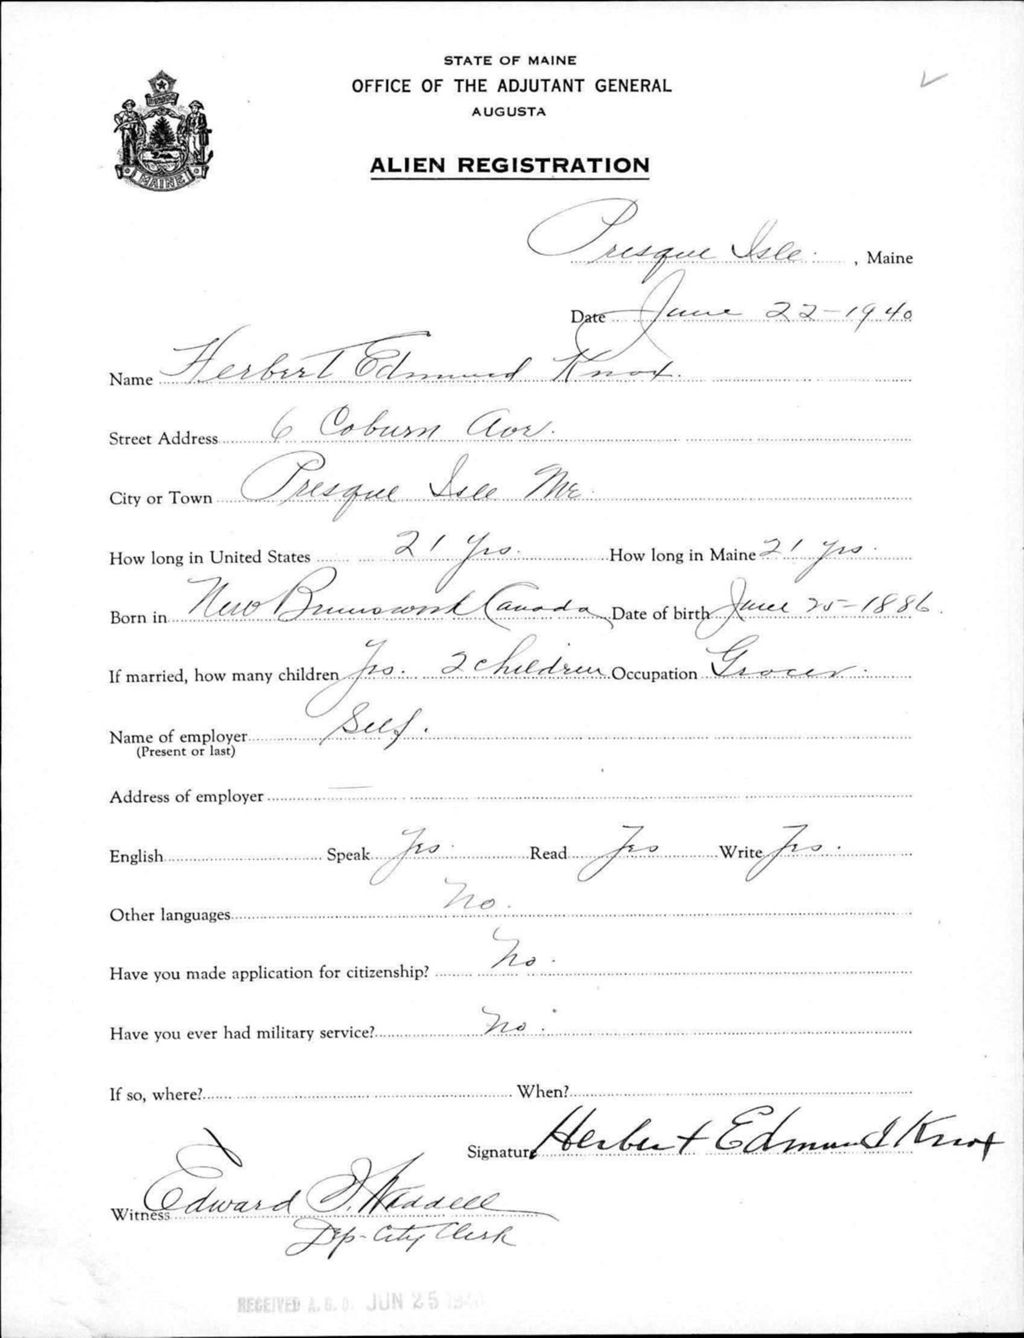 STATE OF MAINE
OFFICE OF THE ADJUTANT GENERAL
AUGUSTA
ALIEN REGISTRATION
MAINE
Presque Isle. , Maine
Date June 22-1940
Name Herbert Edmund Knox.
Street Address 6 Coburn Ave.
City or Town Presque Isle Me.
How long in United States 21 yrs. How long in Maine 21 yrs.
Born in New Brunswick Canada Date of birth June 25-1886.
If married, how many children Yes. 2 children Occupation Grocer.
Name of employer Self.
(Present or last)
Address of employer —
English Speak Yes. Read Yes Write Yes.
Other languages No.
Have you made application for citizenship? No.
Have you ever had military service? No.
If so, where? When?
Signature Herbert Edmund Knox
Witness Edward Waddell
Dep-City Clerk
RECEIVED A.G.O. JUN 25 1940